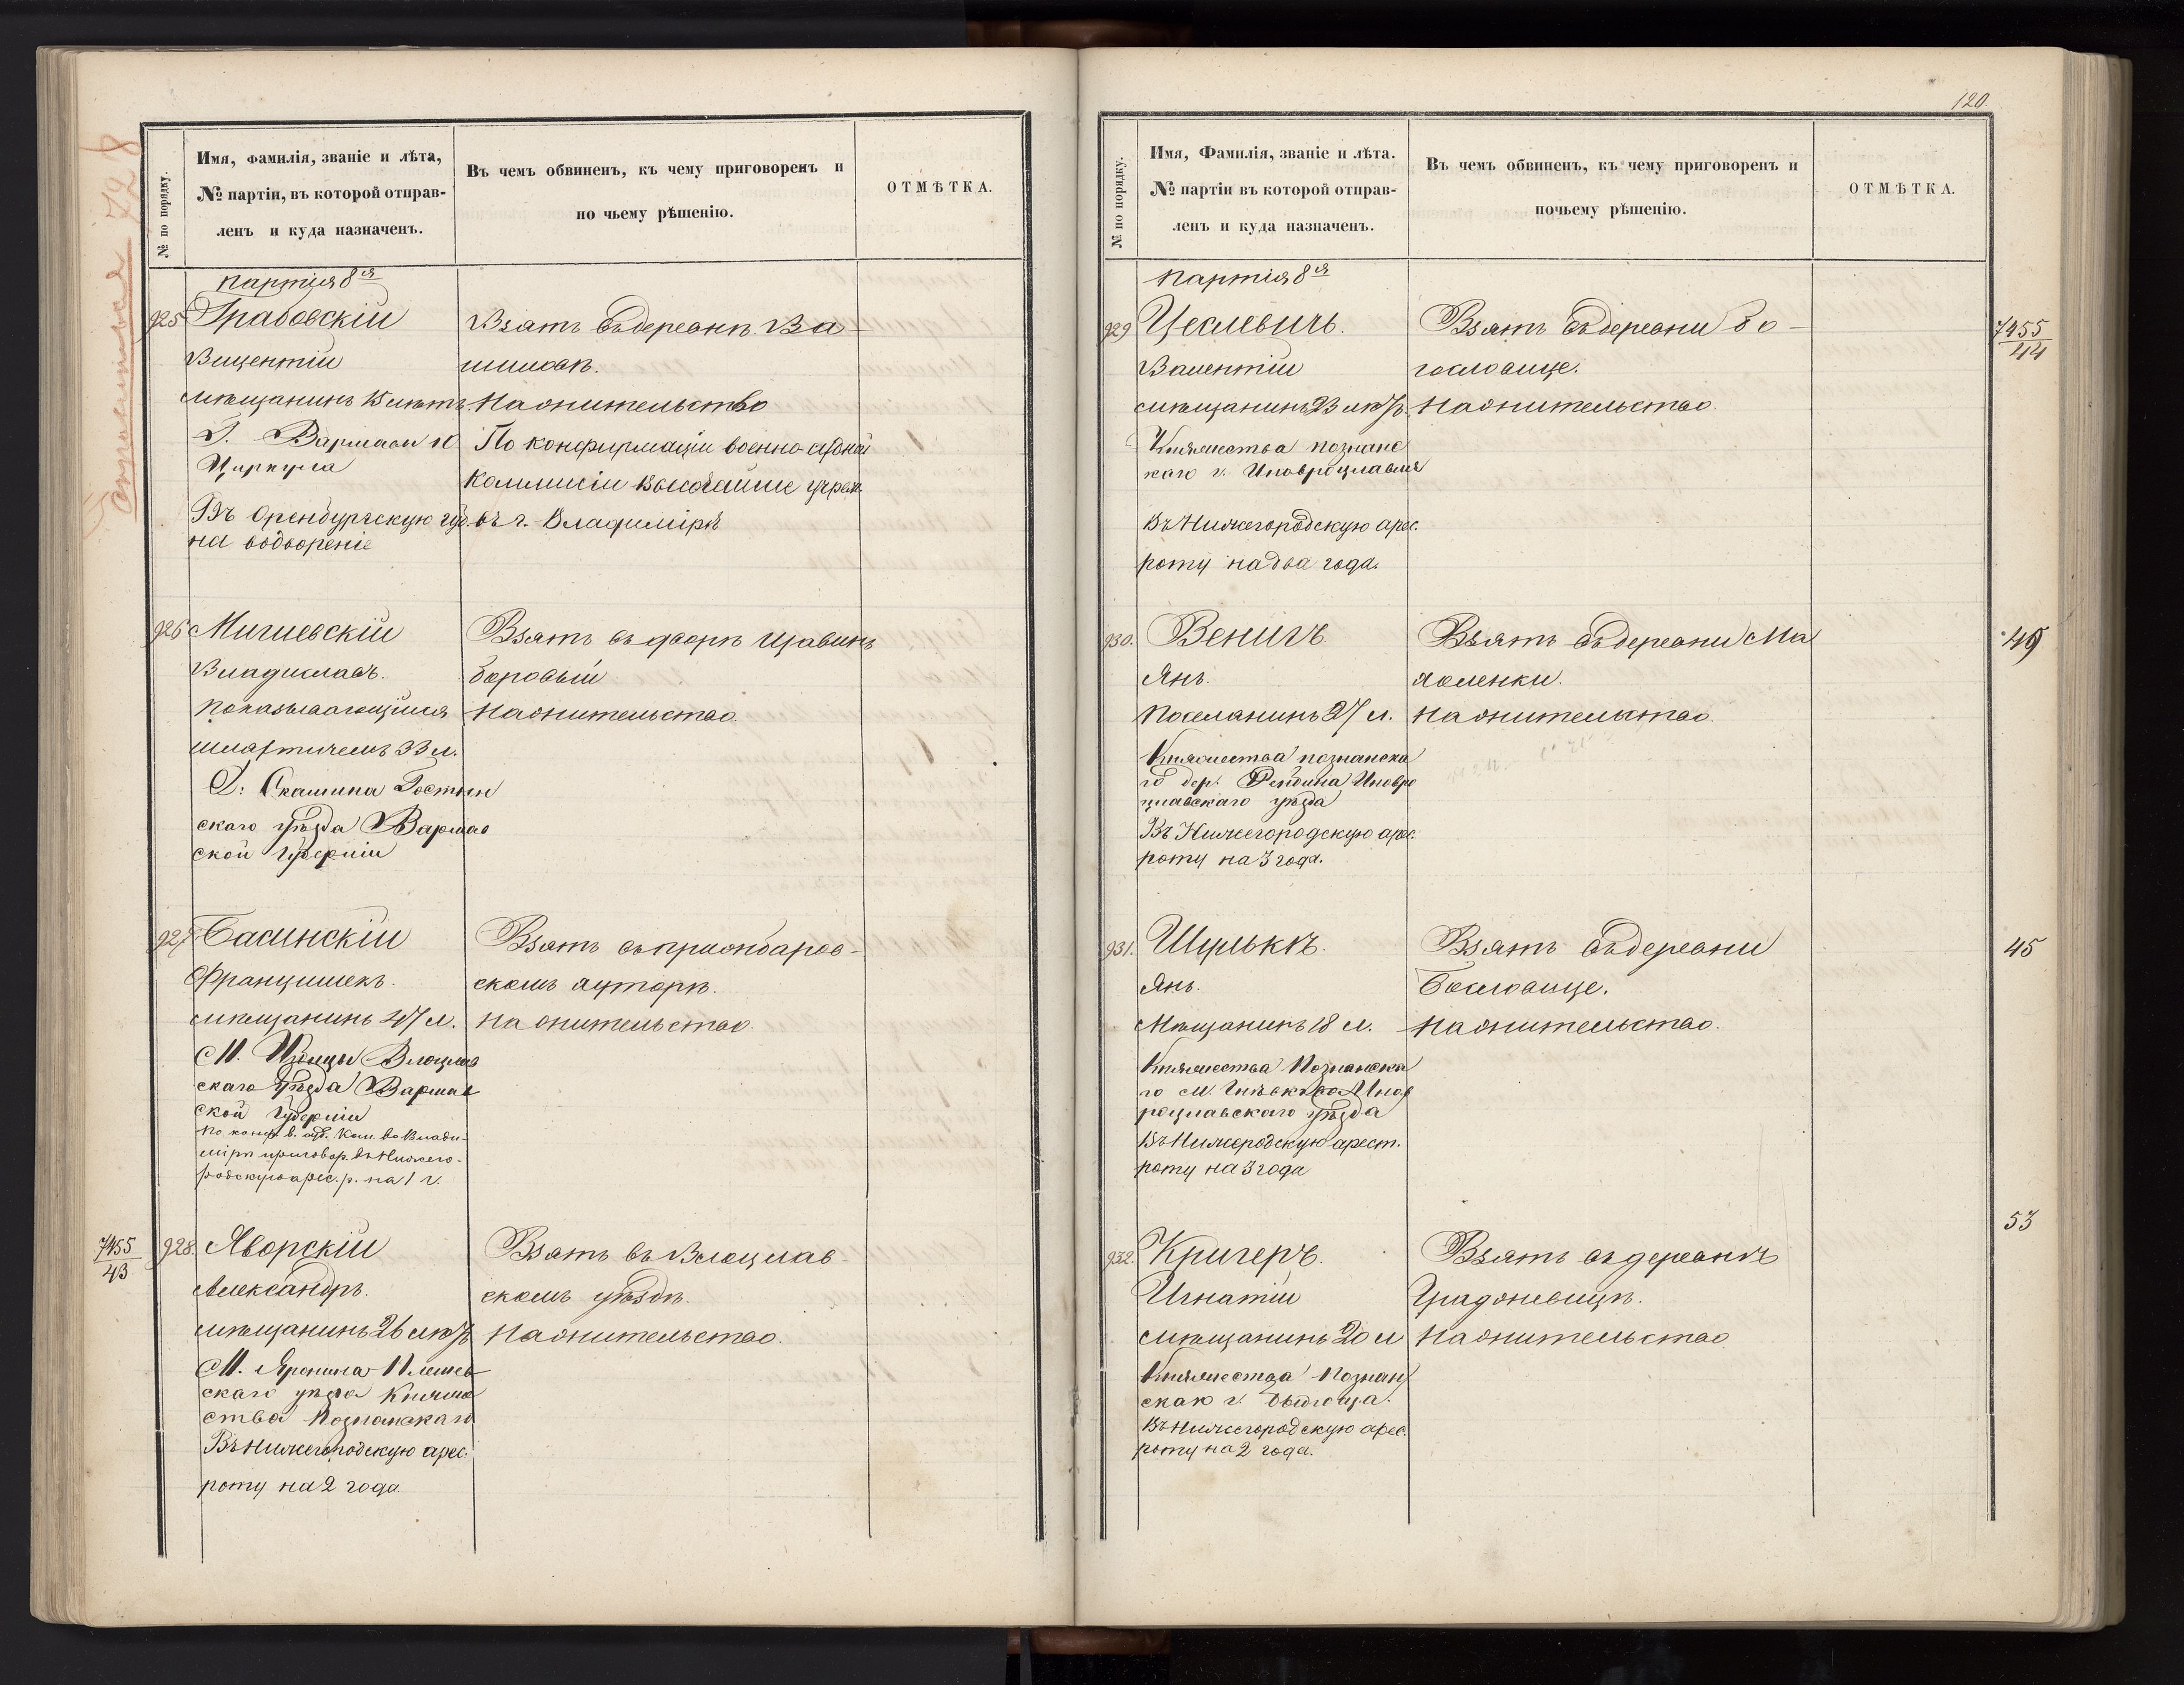 № по порядку.
Имя, фамилія, званіе и лѣта,
№ партіи, въ которой отправ-
ленъ и куда назначенъ.
Въ чемъ обвиненъ, къ чему приговоренъ и
по чьему рѣшенію.
ОТМѢТКА.
728
Партія 8я
925 Грабовскій
Вицентій
мѣщанинъ 15 лѣтъ
Г. Варшавы 10
Циркула
Въ Оренбургскую губ
на водвореніе
Взятъ въ деревнѣ Ва-
На жительство
По конфирмаціи военно-судной
Коммисіи Высочайше учреж.
въ г. Владимірѣ
926
Владиславъ.
показывающійся
шляхтичемъ 33 л.
Гостын
скаго уѣзда Варшав
ской Губерніи
Взятъ въ дворѣ
боровый
На жительство.
927
Францишекъ.
мѣщанинъ 47 л.
М. Влоцлав
скаго уѣзда Варшав
ской Губерніи
По конф. в. суд. Ком. во Влади-
мірѣ приговор. въ Нижего-
родскую арес. р. на 1 г.
Взятъ
скомъ хуторѣ.
На жительство.
7455
43
928. Яворскій
Александръ.
мѣщанинъ 26 лѣтъ
М. Плешев
скаго уѣзда Княже
ства Познанскаго
Въ Нижегородскую арес.
роту на 2 года.
Взятъ въ Влоцлав-
скомъ уѣздѣ.
На жительство.
120.
№ по порядку.
Имя, Фамилія, званіе и лѣта.
№ партіи въ которой отправ-
ленъ и куда назначенъ.
Въ чемъ обвиненъ, къ чему приговоренъ и
почьему рѣшенію.
ОТМѢТКА.
Партія 8я
929 Цеслевичъ.
Валентій
мѣщанинъ 23 лѣтъ.
Княжества познанс
каго г. Иновроцлавля
Въ Нижегородскую арес.
роту на два года.
Взятъ въ деревни
На жительство.
7455
44
930. Веничъ.
Янъ.
Поселанинъ 27 л.
Княжества познанска
го дер. Иновро
цлавскаго уѣзда
Въ Нижегородскую арес.
роту на 3 года.
Взятъ въ деревни Ма
На жительство.
931. Шулькъ.
Янъ.
Мѣщанинъ 18 л.
Княжества Познанска
го М. Гнѣвково Инов
роцлавскаго уѣзда
Въ Нижегородскую арест.
роту на 3 года
Взятъ въ деревни
На жительство.
45
932. Кригеръ.
Игнатій
мѣщанинъ 20 л
Княжества Познан
скаго г. Быдгоща.
Въ Нижегородскую арес.
роту на 2 года.
Взятъ въ деревнѣ
На жительство
53